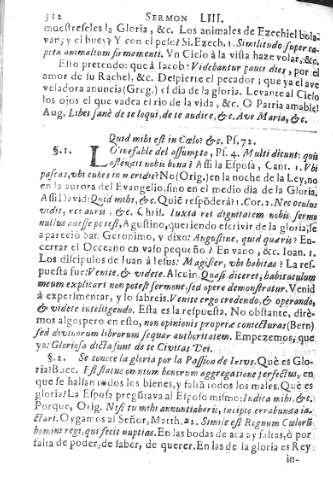 312 SERMON LIII.
muestreseles la Gloria, &c. Los animales de Ezechiel bola-
van, y el buey? Y con el peso? Si. Ezech. 1. Similitudo super ca-
pita animalium firmamenti. Vn Cielo à la vista haze volar, &c.
Esto pretendo: que à Iacob: Videbantur pauci dies, por el
amor de su Rachel, &c. Despierte el pecador; que ya el ave
veladora anuncia (Greg.) el dia de la gloria. Levante al Cielo
los ojos el que vadea el rio de la vida, &c. O Patria amable!
Aug. Libet sanè de te loqui, de te audire, &c. Ave Maria, &c.
Quid mihi est in Cœlo? &c. Ps. 72.
§. 1. LO inefable del assumpto, Ps. 4. Multi dicunt: quis
ostendit nobis bona? Assi la Esposa, Cant. 1. Vbi
pascas, vbi cubes in meridie? No (Orig.) en la noche de la Ley, no
en la aurora del Evangelio, sino en el medio dia de la Gloria.
Assi David: Quid mihi, &c. Quiē respōderà? 1. Cor. 2. Nec oculus
vidit, nec auris, &c. Chris. Iuxta rei dignitatem nobis sermo
nullus suesse potest, Agustino, queriendo escrivir de la gloria, se
apareciò San Geronimo, y dixo: Augustine, quid quæris? En-
cerrar el Occeano en vaso pequeño? En vano, &c. Ioan. 1.
Los discipulos de Iuan à Iesus: Magister, vbi habitas? La res-
puesta fue: Venite, & videte. Alcuin. Quasi diceret, habitaculum
meum explicari non potest sermone, sed opere demonstratur. Venid
à experimentar, y lo sabreis. Venite ergo credendo, & operando,
& videte intelligendo. Esta es la respuesta. No obstante, dirè-
mos algo; pero en esto, non opinionis propriæ conjecturas (Bern)
sed divinorum librorum sequar authoritatem. Empezemos, que
ya: Gloriosa dicta sunt de te Civitas Dei.
§. 2. Se conoce la gloria por la Passion de Iesvs. Què es Glo-
ria? Boec. Est status omnium bonorum aggregatione perfectus, en
que se hallan todos los bienes, y falta todos los males. Què es
gloria? La Esposa preguntava al Esposo mismo: Indica mihi, &c.
Porque, Orig. Nisi tu mihi annuntiaveris, incipio errabunda ia-
ctari. Oygamos al Señor, Matth. 22. Simile est Regnum Cœlorū
homini regi, qui fecit nuptias. En las bodas de acà ay faltas, ò por
falta de poder, de saber, de querer. En las de la gloria es Rey
in-